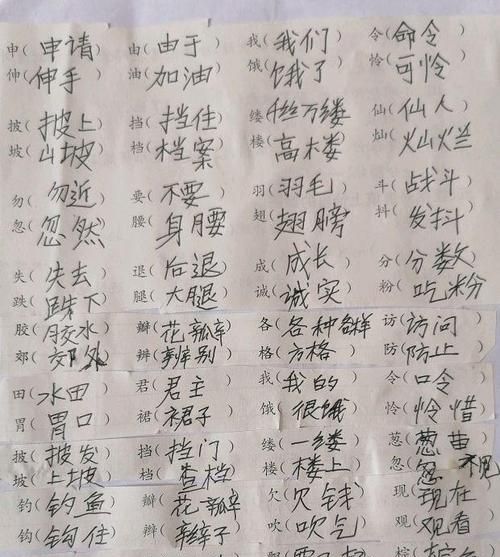 申(申请) 由(由于) 我(我们) 令(命令)
伸(伸手) 油(加油) 饿(饿了) 怜(可怜)
披(披上) 挡(挡住) 缕(千丝万缕) 仙(仙人)
坡(山坡) 档(档案) 楼(高楼) 灿(灿烂)
勿(勿近) 要(不要) 羽(羽毛) 斗(战斗)
忽(忽然) 腰(身腰) 翅(翅膀) 抖(发抖)
失(失去) 退(后退) 成(成长) 分(分数)
跌(跌下) 腿(大腿) 诚(诚实) 粉(吃粉)
胶(胶水) 瓣(花瓣) 各(各种各样) 访(访问)
郊(郊外) 辨(辨别) 格(方格) 防(防止)
田(水田) 君(君主) 我(我的) 令(口令)
胃(胃口) 裙(裙子) 饿(很饿) 怜(怜惜)
披(披发) 挡(挡门) 缕(一缕) 葱(葱
坡(上坡) 档(查档) 楼(楼上) 忽(忽视)
钓(钓鱼) 瓣(花瓣) 欠(欠钱) 现(现在)
钩(钩住) 辫(辫子) 吹(吹气) 观(观看)